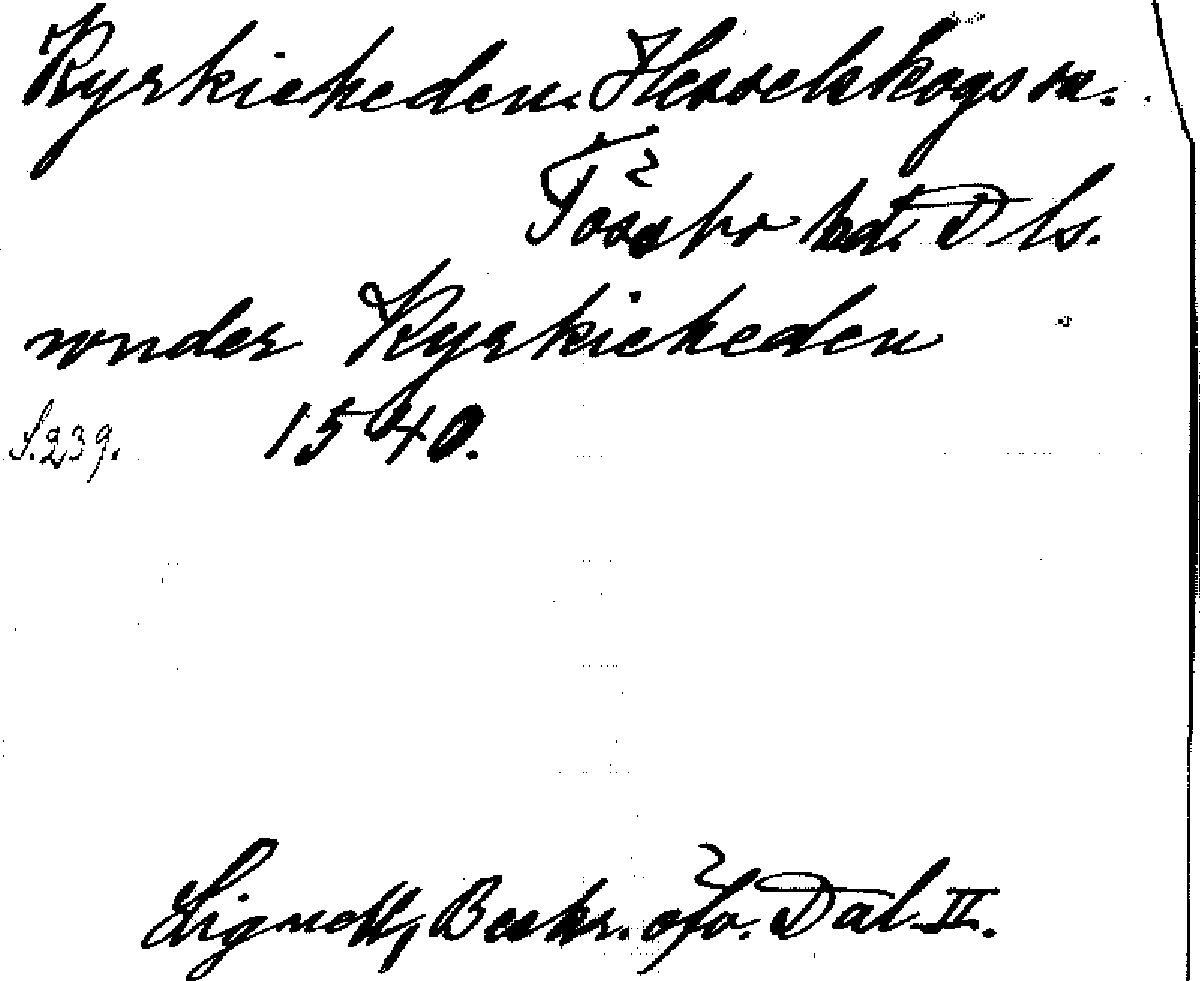 Kyrkieheden. Hesselskogs sn.
Tössbo hd. Dls.
wnder Kyrkieheden
S. 239. 1540.
Lignell, Beskr. öfv. Dal. II.